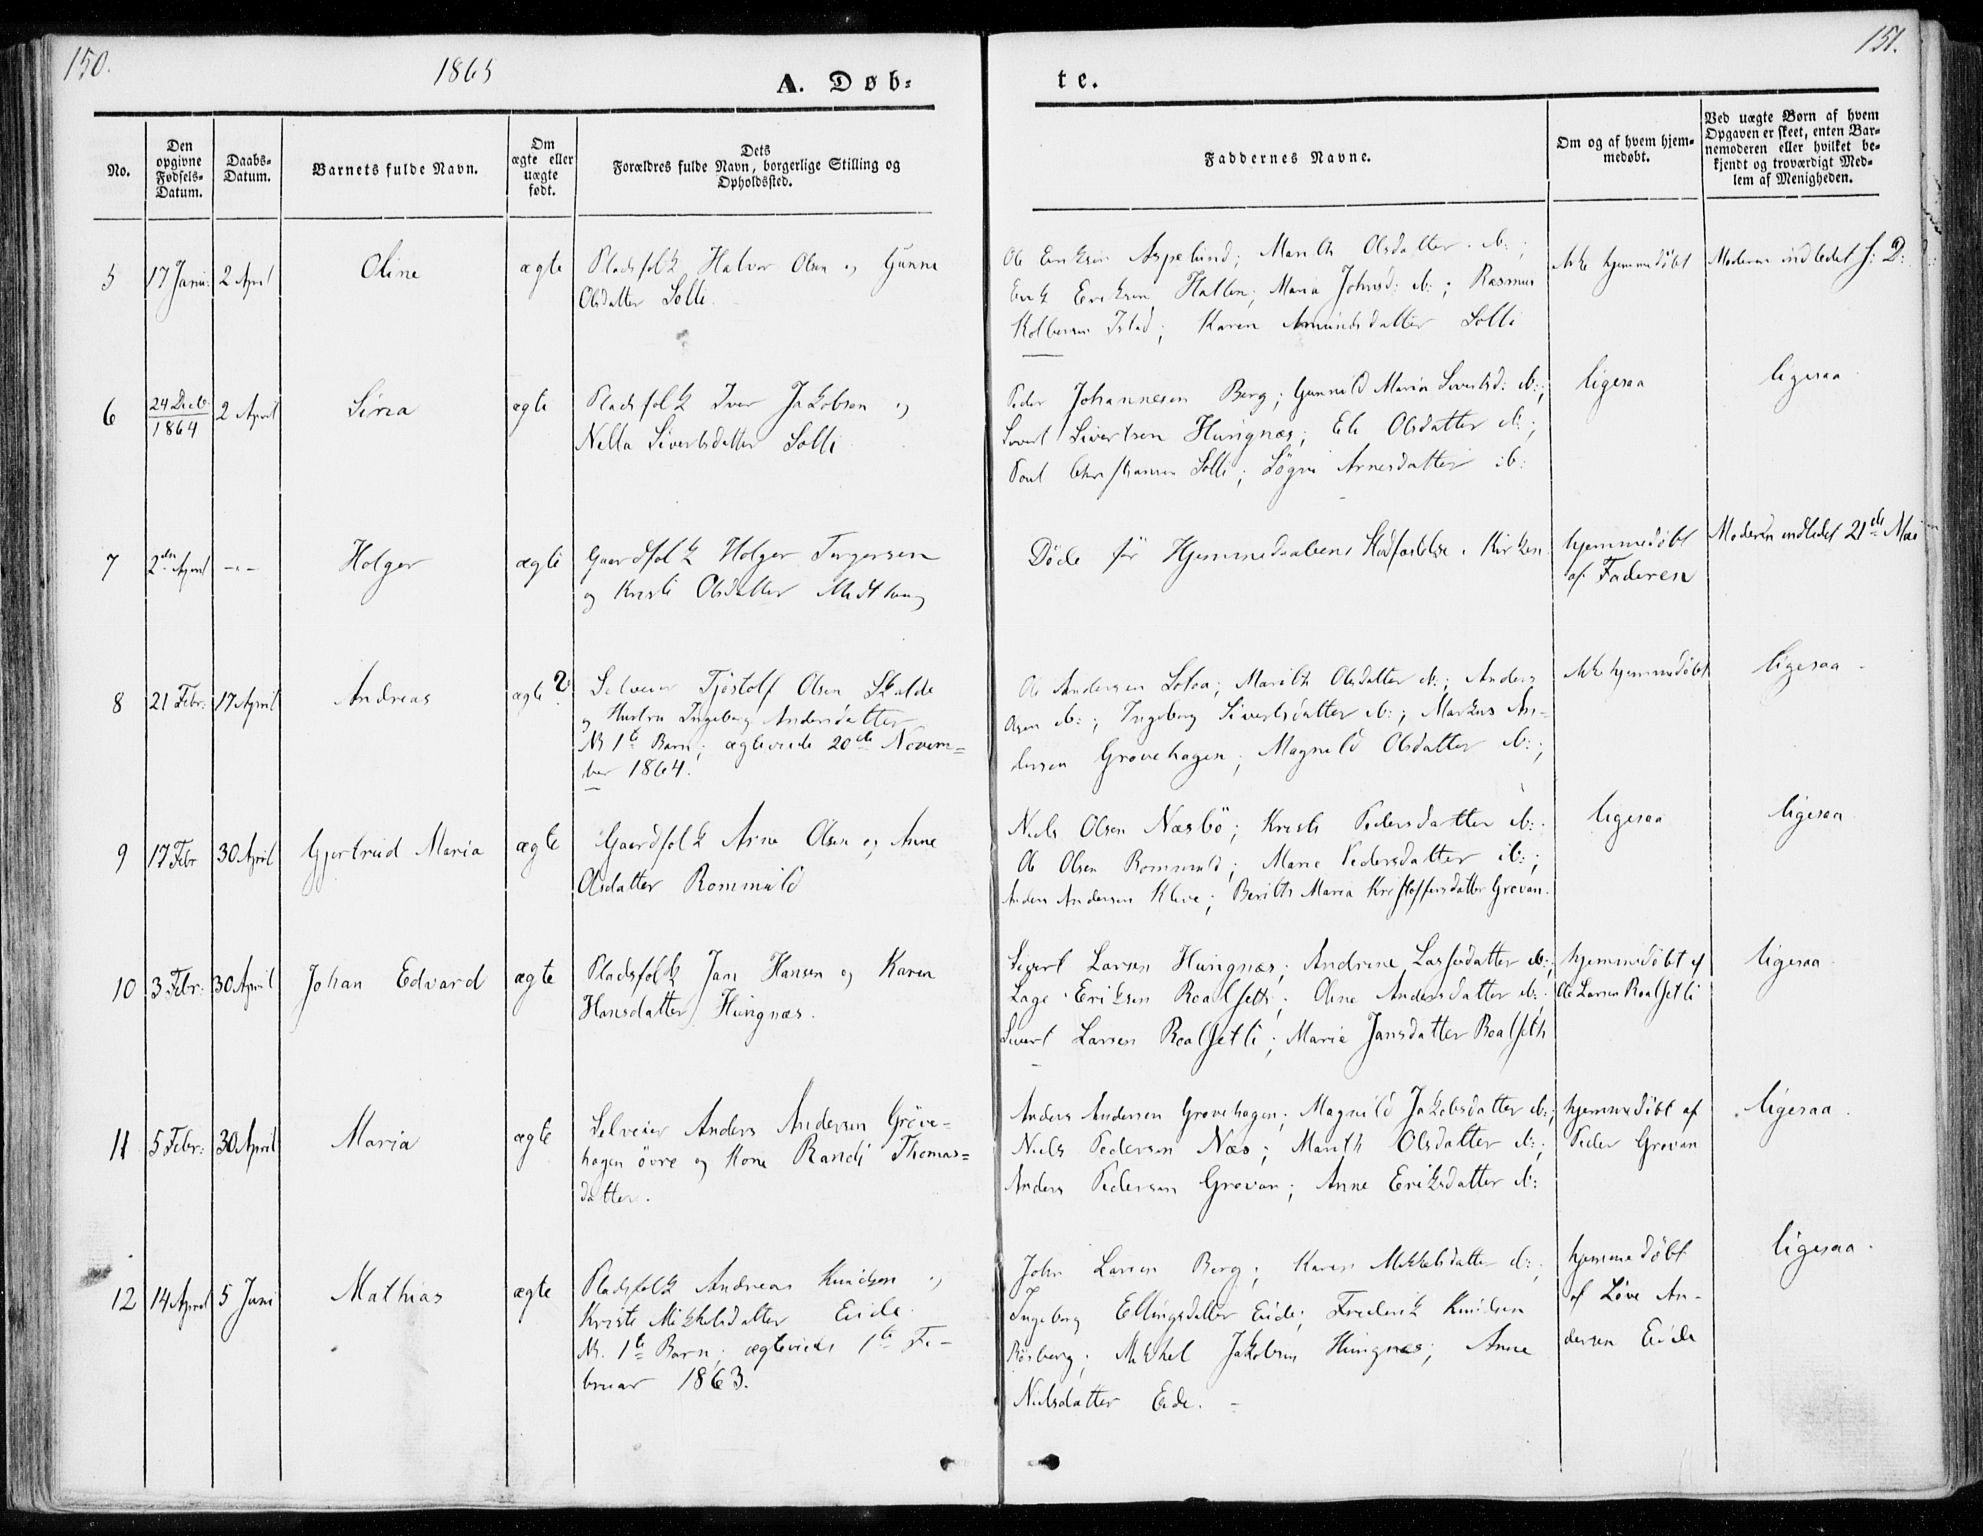 150.
1865
A. Døb-
te.
151.
No.
Den opgivne Fødsels-Datum.
Daabs-Datum.
Barnets fulde Navn.
Om ægte eller uægte født.
Dets Forældres fulde Navn, borgerlige Stilling og Opholdssted.
Faddernes Navne.
Om og af hvem hjem-medøbt.
Ved uægte Børn af hvem Opgaven er skeet, enten Bar-nemoderen eller hvilket be-kjendt og troværdigt Med-lem af Menigheden.
5 17 Janu: 2 April Oline ægte
Pladsfolk Halvor Olsen og Gunna
Olsdatter Solli.
Ole Eriksen Aspelund; Marith Olsdatter ib:;
Erik Eriksen Hallen; Maria Johnsd: ib:; Rasmus
Kolbensen Istad; Karen Amundsdatter Solli
ikke hjemmedøbt
Moderen indledet s: D:
6 24 Decb. 1864 2 April Sirea ægte
Pladsfolk Iver Jakobsen og
Nella Sivertsdatter Solli
Peder Johannesen Berg; Gunnild Maria Sivertsd: ib:;
Sivert Sivertsen Hungnæs; Eli Olsdatter ib:;
Poul Christiansen Solli; Sögni Arnesdatter ib:
ligesaa
ligesaa
7 2den April -"- Holger ægte
Gaardfolk Holger Torgersen
og Kristi Olsdatter Midthaug
Döde för Hjemmedaabens Stadfæstelse i Kirken
hjemmedöbt
af Faderen
Moderen indledet 21de Mai
8 21 Febr: 17 April Andreas ægte ?
Selveier Tjöstolf Olsen Skalde
og Hustru Ingeborg Andersdatter
NB 1te Barn; ægteviede 20de Novem=
ber 1864.
Ole Andersen Solea; Marith Olsdatter ib:; Anders
Olsen ib:; Ingeborg Sivertsdatter ib:; Markus An-
dersen Grovehagen; Magnild Olsdatter ib:;
ikke hjemmedøbt
ligesaa -
9 17 Febr 30 April Gjertrud Maria ægte
Gaardfolk Arne Olsen og Anne
Olsdatter Rommuld
Niels Olsen Næsbö; Kristi Pedersdatter ib:;
Ole Olsen Rommuld; Marie Pedersdatter ib:;
Anders Andersen Kleve; Berith Maria Kristoffersdatter Grovan.
ligesaa
ligesaa
10 3 Febr: 30 April Johan Edvard ægte
Pladsfolk Jan Hansen og Karen
Hansdatter Hungnæs.
Sivert Larsen Hungnæs; Andrine Lassesdatter ib:;
Lage Eriksen Roalseth; Oline Andersdatter ib:;
Sivert Larsen Roalsetli; Marie Jansdatter Roalseth
hjemmedöbt af
Ole Larsen Roalsetli
ligesaa
11 5 Febr: 30 April Maria ægte
Selveier Anders Andersen Gröve-
hagen övre og Kone Randi Thomas=
datter.
Anders Andersen Grovehagen; Magnild Jakobsdatter ib:;
Niels Pedersen Næs; Marith Olsdatter ib:;
Anders Pedersen Grovan; Anne Eriksdatter ib:
hjemmedöbt af
Peder Grovan
ligesaa.
12 14 April 5 Juni Mathias ægte
Pladsfolk Andreas Knudsen og
Kristi Mikkelsdatter Eide.
NB. 1te Barn; ægteviede 1te Fe-
bruar 1863.
John Larsen Berg; Karen Mikkelsdatter ib:;
Ingeborg Ellingsdatter Eide; Frederik Knudsen
Rösberg; Mikkel Jakobsen Hungnæs; Anne
Nielsdatter Eide. -
hjemmedöbt
af Löve An-
dersen Eide
ligesaa.